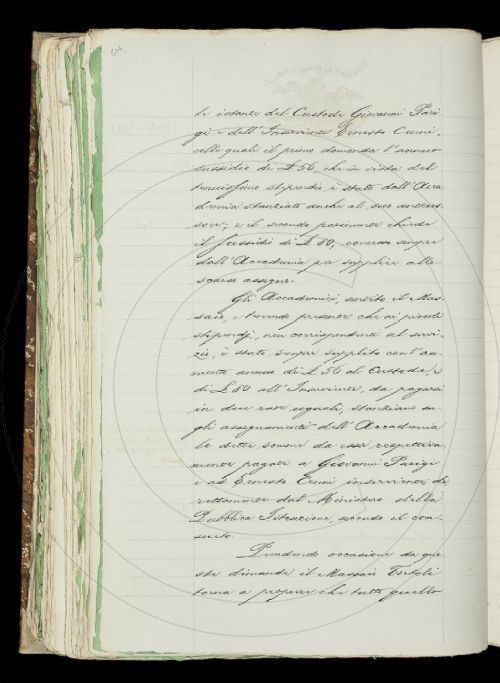 le istanze del Custode Giovanni Pari
gi e dell'Inserviente Ernesto Cenni,
colle quali il primo domanda l'annuo
sussidio di £ 56, che in vista del
tenuissimo stipendio è stato dall'Acca
demia stanziato anche al suo anteces
sore; e il secondo parimente chiede
il sussidio di £ 80, concesso sempre
dall'Accademia per supplire allo
scarso assegno.
Gli Accademici, sentito il Mas
saio, e tenendo presente che ai piccoli
stipendj, non corrispondenti al servi
zio, è stato sempre supplito coll'au
mento annuo di £ 56 al Custode, e
di £ 80 all'Inserviente, da pagarsi
in due rate eguali, stanziano su
gli assegnamenti dell'Accademia
le dette somme da esser respettiva
mente pagate a Giovanni Parigi
e ad Ernesto Cenni inserviente, di
rettamente dal Ministero della
Pubblica Istruzione, secondo il con
sueto.
Prendendo occasione da que
ste dimande il Massaio Tortoli
torna a proporre che tutto quello